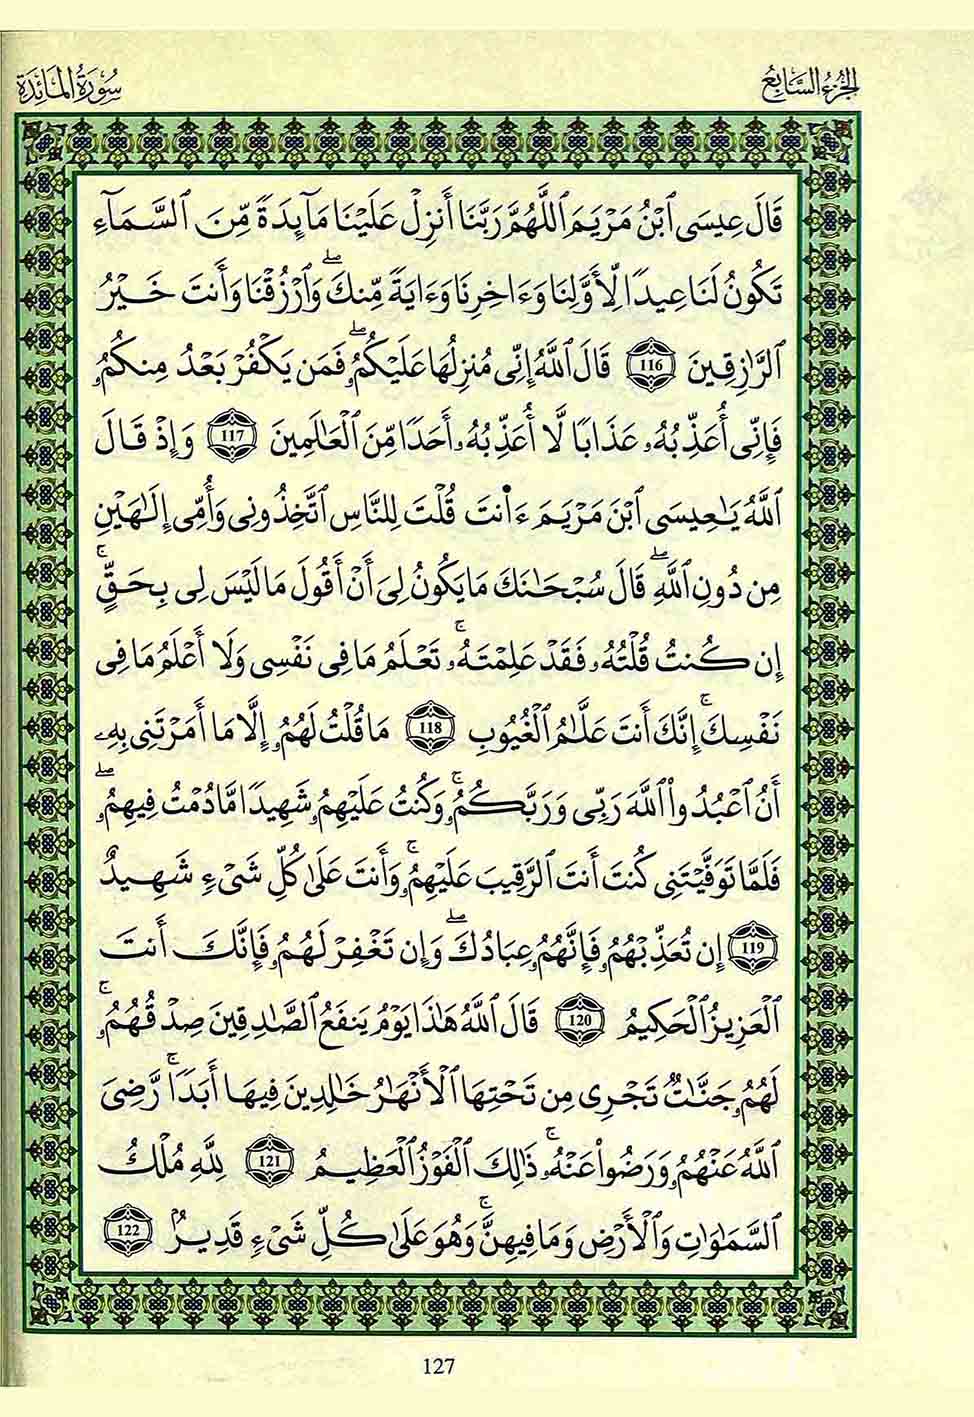 الجزء السابع
سورة المائدة
قَالَ عِيسَى ٱبْنُ مَرْيَمَ ٱللَّهُمَّ رَبَّنَا أَنزِلْ عَلَيْنَا مَآئِدَةً مِّنَ ٱلسَّمَآءِ
تَكُونُ لَنَا عِيدًا لِّأَوَّلِنَا وَءَاخِرِنَا وَءَايَةً مِّنكَۖ وَٱرْزُقْنَا وَأَنتَ خَيْرُ
ٱلرَّٰزِقِينَ 116 قَالَ ٱللَّهُ إِنِّى مُنزِلُهَا عَلَيْكُمُۥۖ فَمَن يَكْفُرْ بَعْدُ مِنكُمُۥ
فَإِنِّى أُعَذِّبُهُۥ عَذَابًا لَّا أُعَذِّبُهُۥ أَحَدًا مِّنَ ٱلْعَٰلَمِينَ 117 وَإِذْ قَالَ
ٱللَّهُ يَٰعِيسَى ٱبْنَ مَرْيَمَ ءَا۬نتَ قُلْتَ لِلنَّاسِ ٱتَّخِذُونِى وَأُمِّى إِلَٰهَيْنِ
مِن دُونِ ٱللَّهِۖ قَالَ سُبْحَٰنَكَ مَا يَكُونُ لِىَ أَنْ أَقُولَ مَا لَيْسَ لِى بِحَقٍّۚ
إِن كُنتُ قُلْتُهُۥ فَقَدْ عَلِمْتَهُۥۚ تَعْلَمُ مَا فِى نَفْسِى وَلَا أَعْلَمُ مَا فِى
نَفْسِكَۚ إِنَّكَ أَنتَ عَلَّٰمُ ٱلْغُيُوبِ 118 مَا قُلْتُ لَهُمُۥ إِلَّا مَا أَمَرْتَنِى بِهِۦ
أَنُ ٱعْبُدُوا۟ ٱللَّهَ رَبِّى وَرَبَّكُمُۥۚ وَكُنتُ عَلَيْهِمُۥ شَهِيدًا مَّا دُمْتُ فِيهِمُۥۖ
فَلَمَّا تَوَفَّيْتَنِى كُنتَ أَنتَ ٱلرَّقِيبَ عَلَيْهِمُۥۚ وَأَنتَ عَلَىٰ كُلِّ شَىْءٍ شَهِيدٌ
119 إِن تُعَذِّبْهُمُۥ فَإِنَّهُمُۥ عِبَادُكَۖ وَإِن تَغْفِرْ لَهُمُۥ فَإِنَّكَ أَنتَ
ٱلْعَزِيزُ ٱلْحَكِيمُ 120 قَالَ ٱللَّهُ هَٰذَا يَوْمُ يَنفَعُ ٱلصَّٰدِقِينَ صِدْقُهُمُۥۚ
لَهُمُۥ جَنَّٰتٌ تَجْرِى مِن تَحْتِهَا ٱلْأَنْهَٰرُ خَٰلِدِينَ فِيهَا أَبَدًاۚ رَّضِىَ
ٱللَّهُ عَنْهُمُۥ وَرَضُوا۟ عَنْهُۥۚ ذَٰلِكَ ٱلْفَوْزُ ٱلْعَظِيمُ 121 لِلَّهِ مُلْكُ
ٱلسَّمَٰوَٰتِ وَٱلْأَرْضِ وَمَا فِيهِنَّۚ وَهُوَ عَلَىٰ كُلِّ شَىْءٍ قَدِيرٌ 122
127